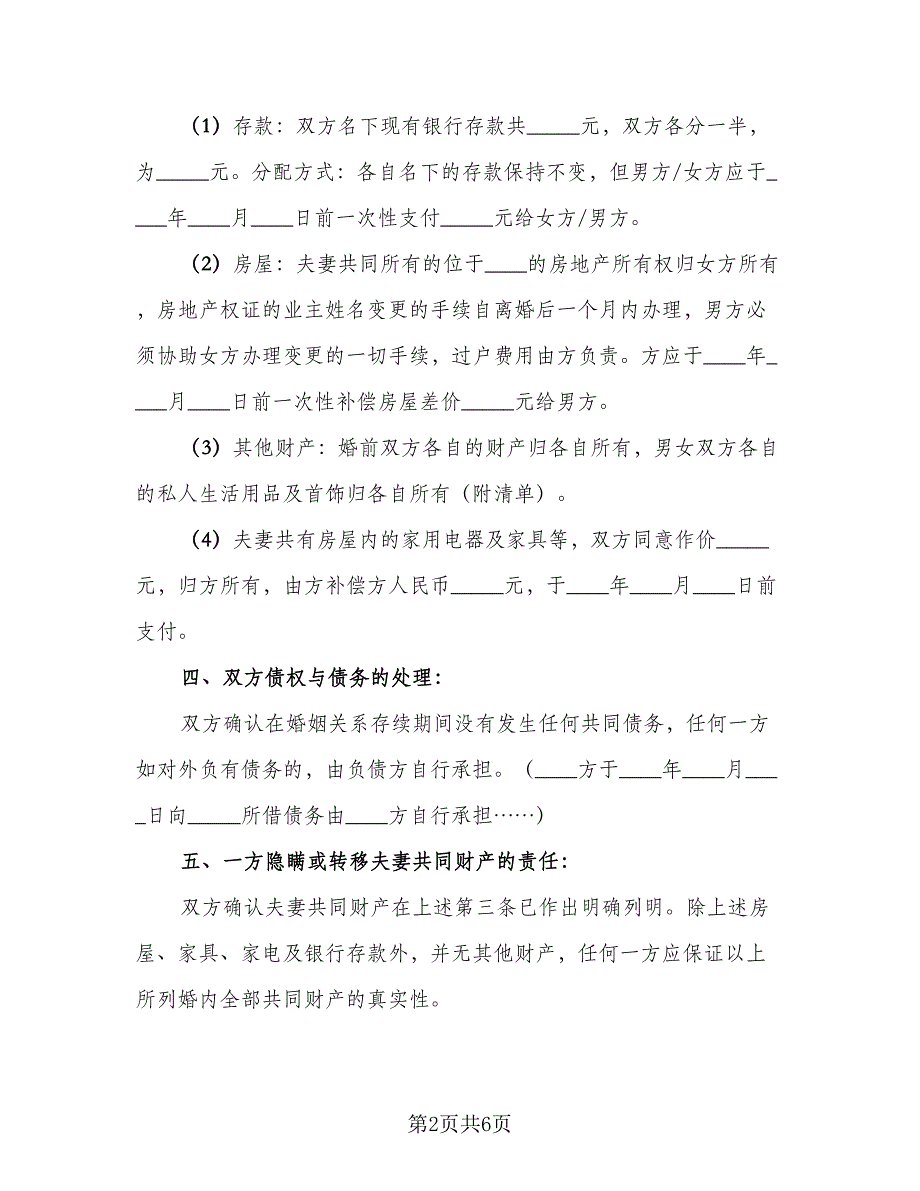 （1）存款：双方名下现有银行存款共_____元，双方各分一半，
为_____元。分配方式：各自名下的存款保持不变，但男方/女方应于_
___年____月____日前一次性支付_____元给女方/男方。
（2）房屋：夫妻共同所有的位于____的房地产所有权归女方所有
，房地产权证的业主姓名变更的手续自离婚后一个月内办理，男方必
须协助女方办理变更的一切手续，过户费用由方负责。方应于____年_
___月____日前一次性补偿房屋差价_____元给男方。
（3）其他财产：婚前双方各自的财产归各自所有，男女双方各自
的私人生活用品及首饰归各自所有（附清单）。
（4）夫妻共有房屋内的家用电器及家具等，双方同意作价_____
元，归方所有，由方补偿方人民币_____元，于____年____月____日前
支付。
四、双方债权与债务的处理：
双方确认在婚姻关系存续期间没有发生任何共同债务，任何一方
如对外负有债务的，由负债方自行承担。（____方于____年____月___
_日向_____所借债务由____方自行承担……）
五、一方隐瞒或转移夫妻共同财产的责任：
双方确认夫妻共同财产在上述第三条已作出明确列明。除上述房
屋、家具、家电及银行存款外，并无其他财产，任何一方应保证以上
所列婚内全部共同财产的真实性。
第2页共6页